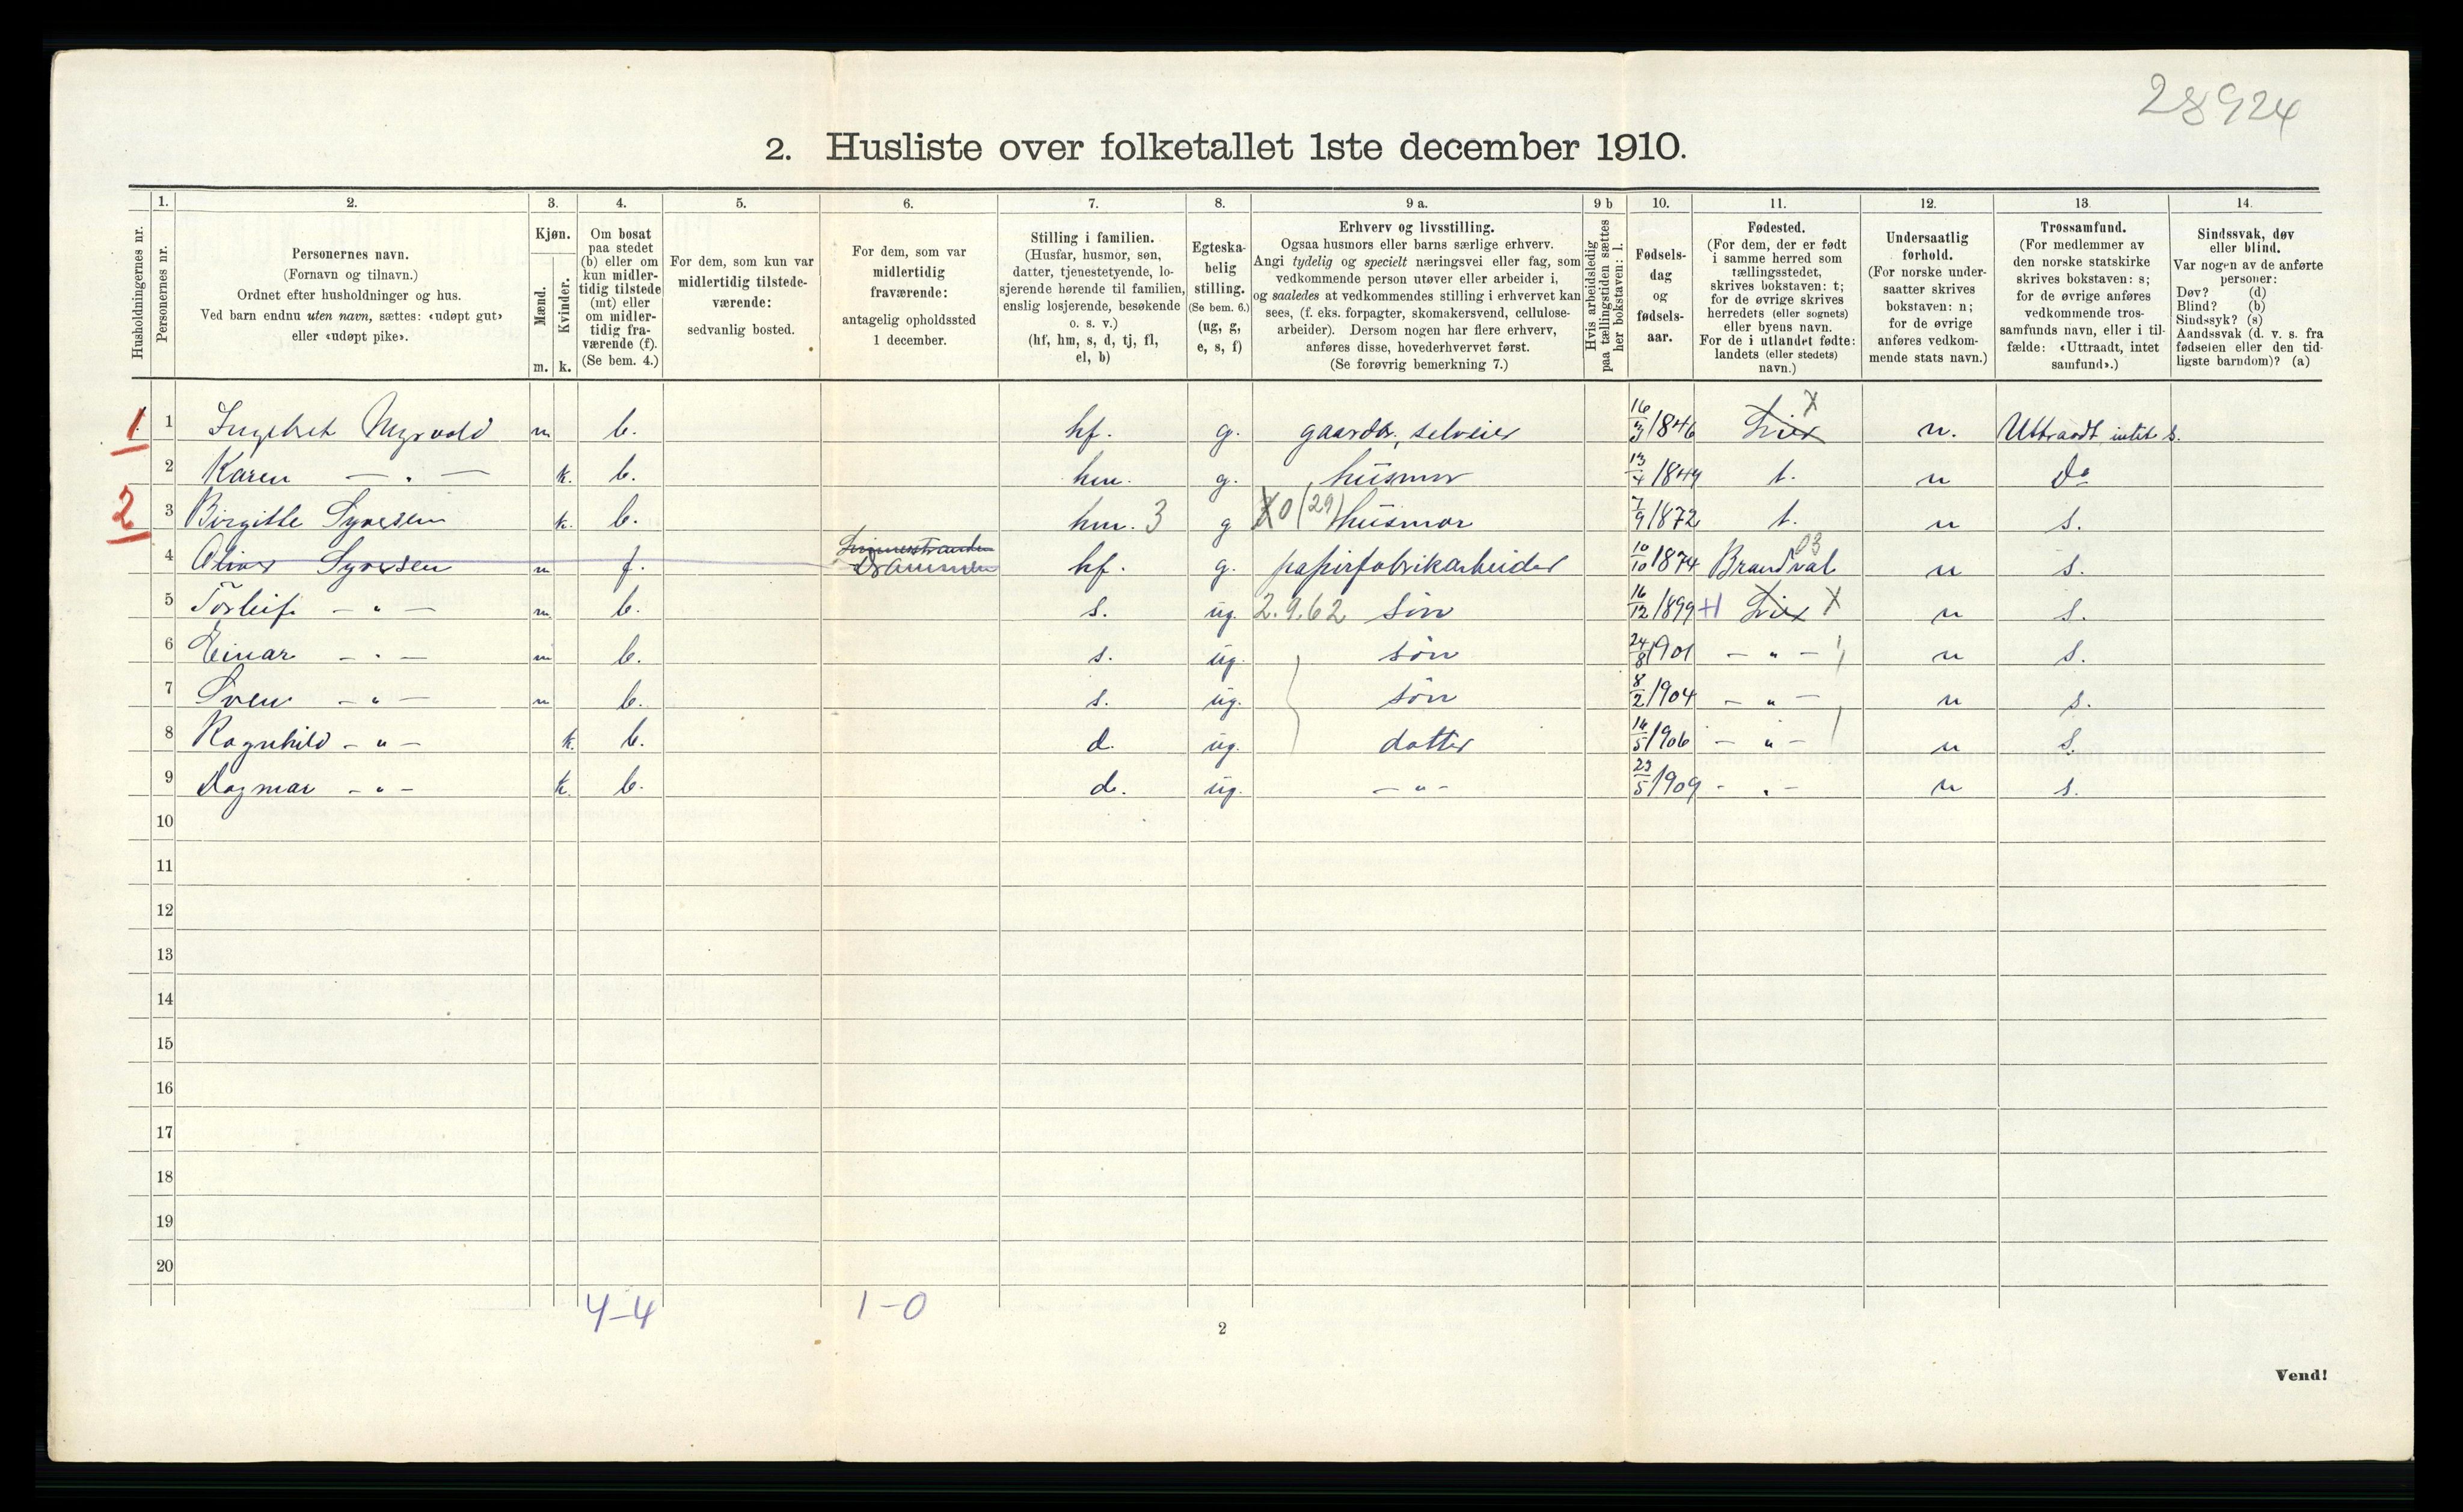 28924
2. Husliste over folketallet 1ste december 1910.
Husholdningernes nr.
1.
Personernes nr.
2.
Personernes navn.
(Fornavn og tilnavn.)
Ordnet efter husholdninger og hus.
Ved barn endnu uten navn, sættes: «udøpt gut»
eller «udøpt pike».
3.
Kjøn.
Mænd.
Kvinder.
m. k.
4.
Om bosat
paa stedet
(b) eller om
kun midler-
tidig tilstede
(mt) eller
om midler-
tidig fra-
værende (f).
(Se bem. 4.)
5.
For dem, som kun var
midlertidig tilstede-
værende:
sedvanlig bosted.
6.
For dem, som var
midlertidig
fraværende:
antagelig opholdssted
1 december.
7.
Stilling i familien.
(Husfar, husmor, søn,
datter, tjenestetyende, lo-
sjerende hørende til familien,
enslig losjerende, besøkende
o. s. v.)
(hf, hm, s, d, tj, fl,
el, b)
8.
Egteska-
belig
stilling.
(Se bem. 6.)
(ug, g,
e, s, f)
9 a.
Erhverv og livsstilling.
Ogsaa husmors eller barns særlige erhverv.
Angi tydelig og specielt næringsvei eller fag, som
vedkommende person utøver eller arbeider i,
og saaledes at vedkommendes stilling i erhvervet kan
sees, (f. eks. forpagter, skomakersvend, cellulose-
arbeider). Dersom nogen har flere erhverv,
anføres disse, hovederhvervet først.
(Se forøvrig bemerkning 7.)
9 b
Hvis arbeidsledig
paa tællingstiden sættes
her bokstaven: l.
10.
Fødsels-
dag
og
fødsels-
aar.
11.
Fødested.
(For dem, der er født
i samme herred som
tællingsstedet,
skrives bokstaven: t;
for de øvrige skrives
herredets (eller sognets)
eller byens navn.
For de i utlandet fødte:
landets (eller stedets)
navn.)
12.
Undersaatlig
forhold.
(For norske under-
saatter skrives
bokstaven: n;
for de øvrige
anføres vedkom-
mende stats navn.)
13.
Trossamfund.
(For medlemmer av
den norske statskirke
skrives bokstaven: s;
for de øvrige anføres
vedkommende tros-
samfunds navn, eller i til-
fælde: «Uttraadt, intet
samfund».)
14.
Sindssvak, døv
eller blind.
Var nogen av de anførte
personer:
Døv? (d)
Blind? (b)
Sindssyk? (s)
Aandssvak (d. v. s. fra
fødselen eller den tid-
ligste barndom)? (a)
1 1 Ingebret Myrvold m b. hf. g. gaardbr, selveier 16/3 1846 Lier X n. Uttraadt, intet s.
2 Karen — " — k. b. hm. g. husmor 13/4 1849 t. n Do
2 3 Birgitte Syversen k. b. hm. 3 g X0 (29) husmor 7/9 1872 t. n s.
4 Oliver Syversen m f. Drammen hf. g. papirfabrikarbeider 10/10 1874 Brandval 03 n s.
5 Torleif — " — m b. s. ug. 2.9.62 søn 16/12 1899 H Lier X n s.
6 Einar — " — m b. s. ug. søn 24/8 1901 — " — n s.
7 Sven — " — m b. s. ug. søn 8/2 1904 — " — n s.
8 Ragnhild — " — k. b. d. ug. datter 14/5 1906 — " — n s.
9 Dagmar — " — k. b. d. ug. — " — 23/5 1909 — " — n s.
10
11
12
13
14
15
16
17
18
19
20
4-4 1-0
2
Vend!